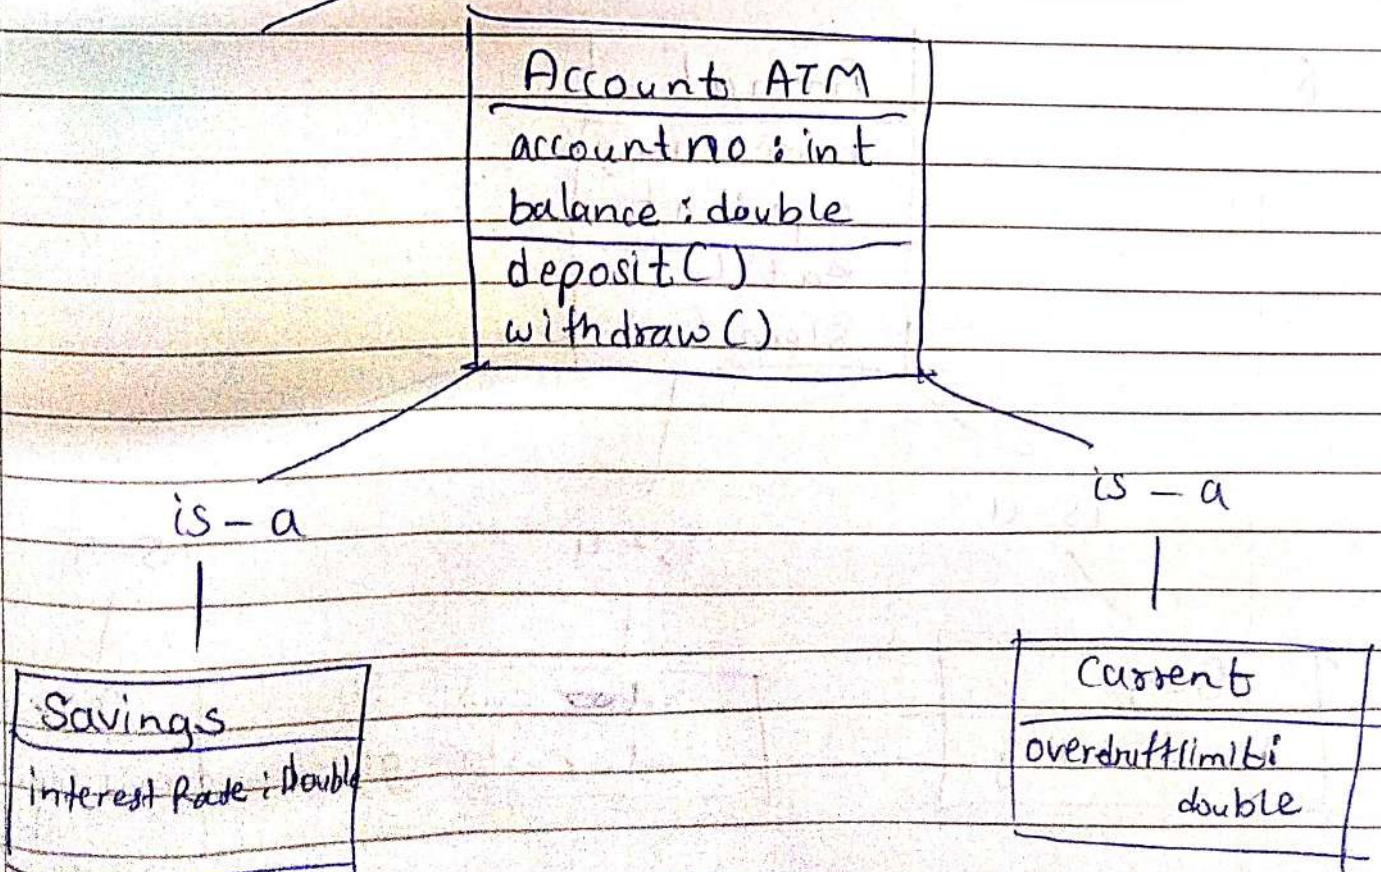 Account ATM
accountno : int
balance : double
deposit()
withdraw()
is - a
is - a
Savings
interest Rate : Double
Current
overdraftlimit:
double